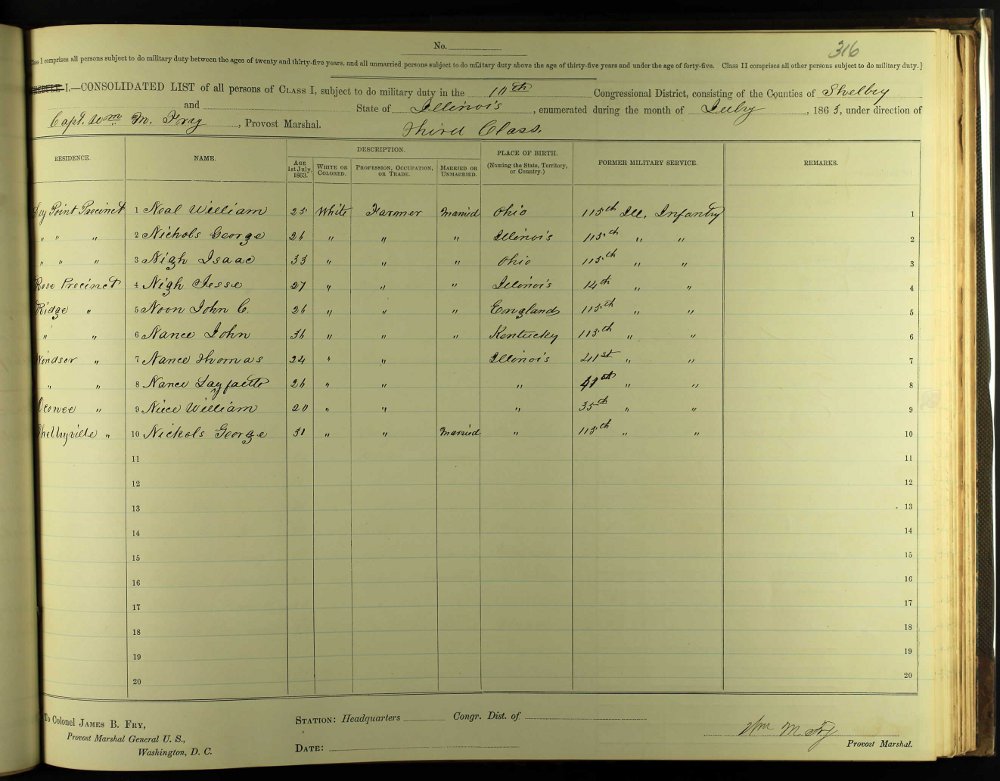 316
No.
Class I comprises all persons subject to do military duty between the ages of twenty and thirty-five years, and all unmarried persons subject to do military duty above the age of thirty-five years and under the age of forty-five. Class II comprises all other persons subject to do military duty.]
I.—CONSOLIDATED LIST of all persons of CLASS I, subject to do military duty in the 10th Congressional District, consisting of the Counties of Shelby
and State of Illinois, enumerated during the month of July, 1863, under direction of
Capt. Wm M. Fry, Provost Marshal. Third Class.
RESIDENCE. NAME. DESCRIPTION. PLACE OF BIRTH. (Naming the State, Territory, or Country.) FORMER MILITARY SERVICE. REMARKS.
AGE 1st July, 1863. WHITE OR COLORED. PROFESSION, OCCUPATION, OR TRADE. MARRIED OR UNMARRIED.
Point Precinct 1 Neal William 25 White Farmer Married Ohio 115th Ill. Infantry 1
" " " 2 Nichols George 26 " " " Illinois 115th " " 2
" " " 3 Nigh Isaac 33 " " " Ohio 115th " " 3
Rose Precinct 4 Nigh Jesse 27 " " " Illinois 14th " " 4
Ridge " 5 Noon John C. 26 " " " England 115th " " 5
" " 6 Nance John 36 " " " Kentucky 115th " " 6
Windsor " 7 Nance Thomas 24 " " Illinois 41st " " 7
" " 8 Nance Layfaette 26 " " " 41st " " 8
Oconee " 9 Niece William 20 " " " 35th " " 9
Shelbyville " 10 Nichols George 31 " " Married " 115th " " 10
11 11
12 12
13 13
14 14
15 15
16 16
17 17
18 18
19 19
20 20
To Colonel JAMES B. FRY, STATION: Headquarters Congr. Dist. of
Provost Marshal General U. S., Wm M Fry
Washington, D. C. DATE: Provost Marshal.